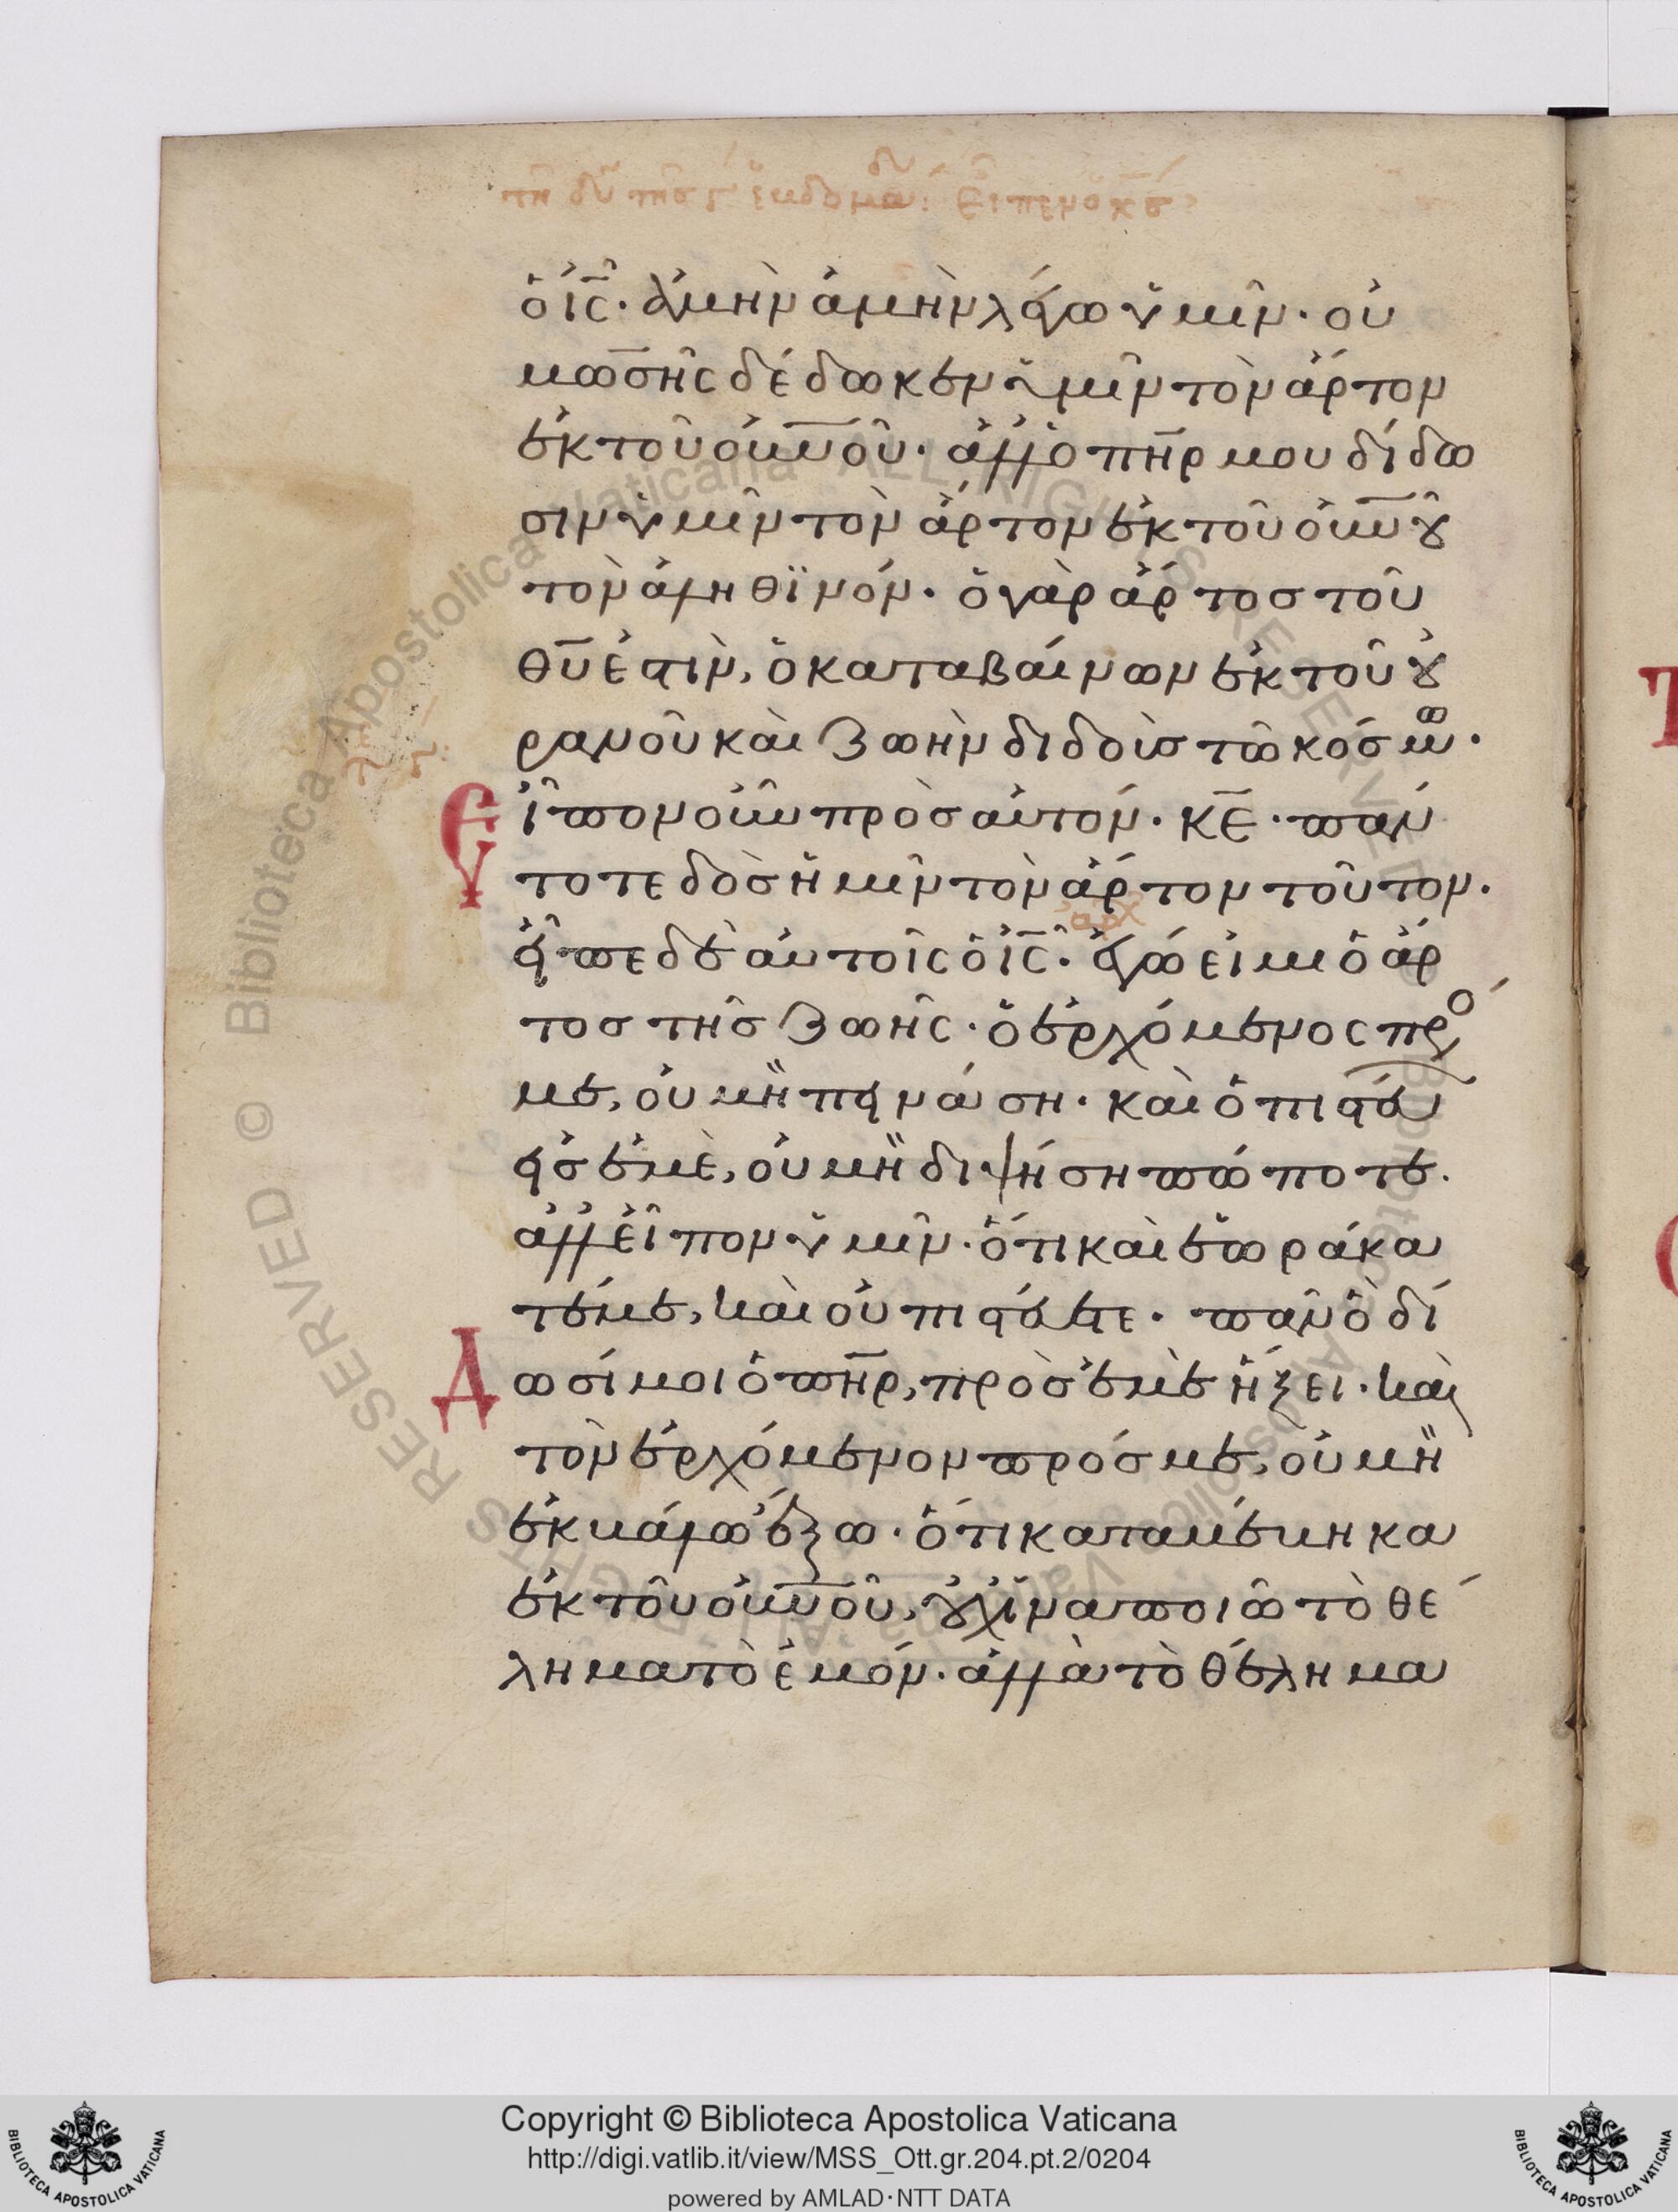 ὁ ἰς̅. ἀμὴν ἀμὴν λέγω ὑμῖν. οὐ
μωσῆς δέδωκεν ὑμῖν τὸν ἄρτον
ἐκ τοῦ οὐν̅οῦ. ἀλλ ὁ πη̅ρ μου δίδω
σιν ὑμῖν τὸν ἄρτον ἐκ τοῦ οὐν̅ου
τὸν ἀληθϊνόν. ὁ γὰρ ἄρτος τοῦ
θυ̅ ἐστιν, ὁ καταβαίνων ἐκ τοῦ οὐ
ρανοῦ καὶ ζωὴν διδοὺς τῶ κόσμω.
Εἶπον οὖν πρὸς αὐτόν. κε̅. πάν
τοτε δὸς ἡμῖν τὸν ἄρτον τοῦτον.
εἶπε δὲ αὐτοῖς ὁ ἰς̅. ἐγώ εἰμι ὁ ἄρ
τος τῆς ζωῆς. ὁ ἐρχόμενος πρό
με, οὐ μὴ πεινάση. καὶ ὁ πιστεύ
εἰς ἐμὲ, οὐ μὴ διψήση πώποτε.
ἀλλ εἶπον ὑμῖν. ὅτι καὶ ἑωράκα
τέ με, καὶ οὐ πιστεύετε. πᾶν ὃ δί
Δωσί μοι ὁ πη̅ρ, πρὸς ἐμὲ ἥξει. καὶ
τὸν ἐρχόμενον πρός με, οὐ μὴ
ἐκβάλω ἔξω. ὅτι καταβέβηκα
ἐκ τοῦ οὐν̅οῦ, οὐχ ἵνα ποιῶ τὸ θέ
λημα τὸ ἐμόν. ἀλλὰ τὸ θέλημα
Copyright © Biblioteca Apostolica Vaticana
http://digi.vatlib.it/view/MSS_Ott.gr.204.pt.2/0204
powered by AMLAD·NTT DATA